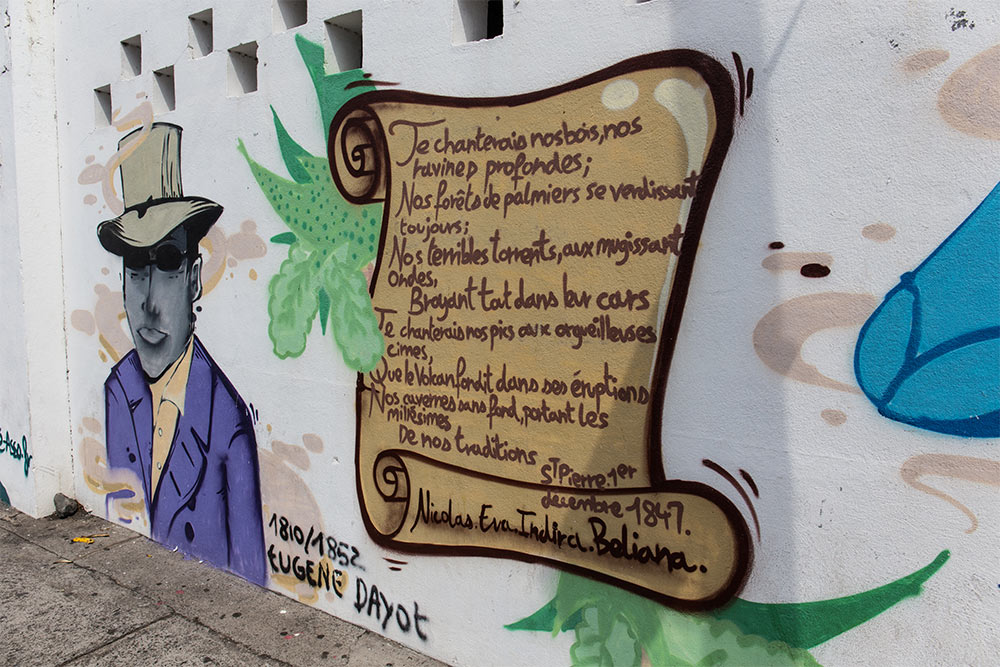 Je chanterais nos bois, nos
ravines profondes;
Nos forêts de palmiers se verdissant
toujours;
Nos terribles torrents, aux mugissant
ondes,
Broyant tat dans leur cars
Je chanterais nos pics aux orgueilleuses
cimes,
Que le Volcan fondit dans ses éruptions
Nos cavernes sans fond, portant les
millésimes
De nos traditions
ST Pierre.1er
decembre 1847.
Nicolas.Eva.Indira.Beliana.
1810/1852
EUGENE DAYot